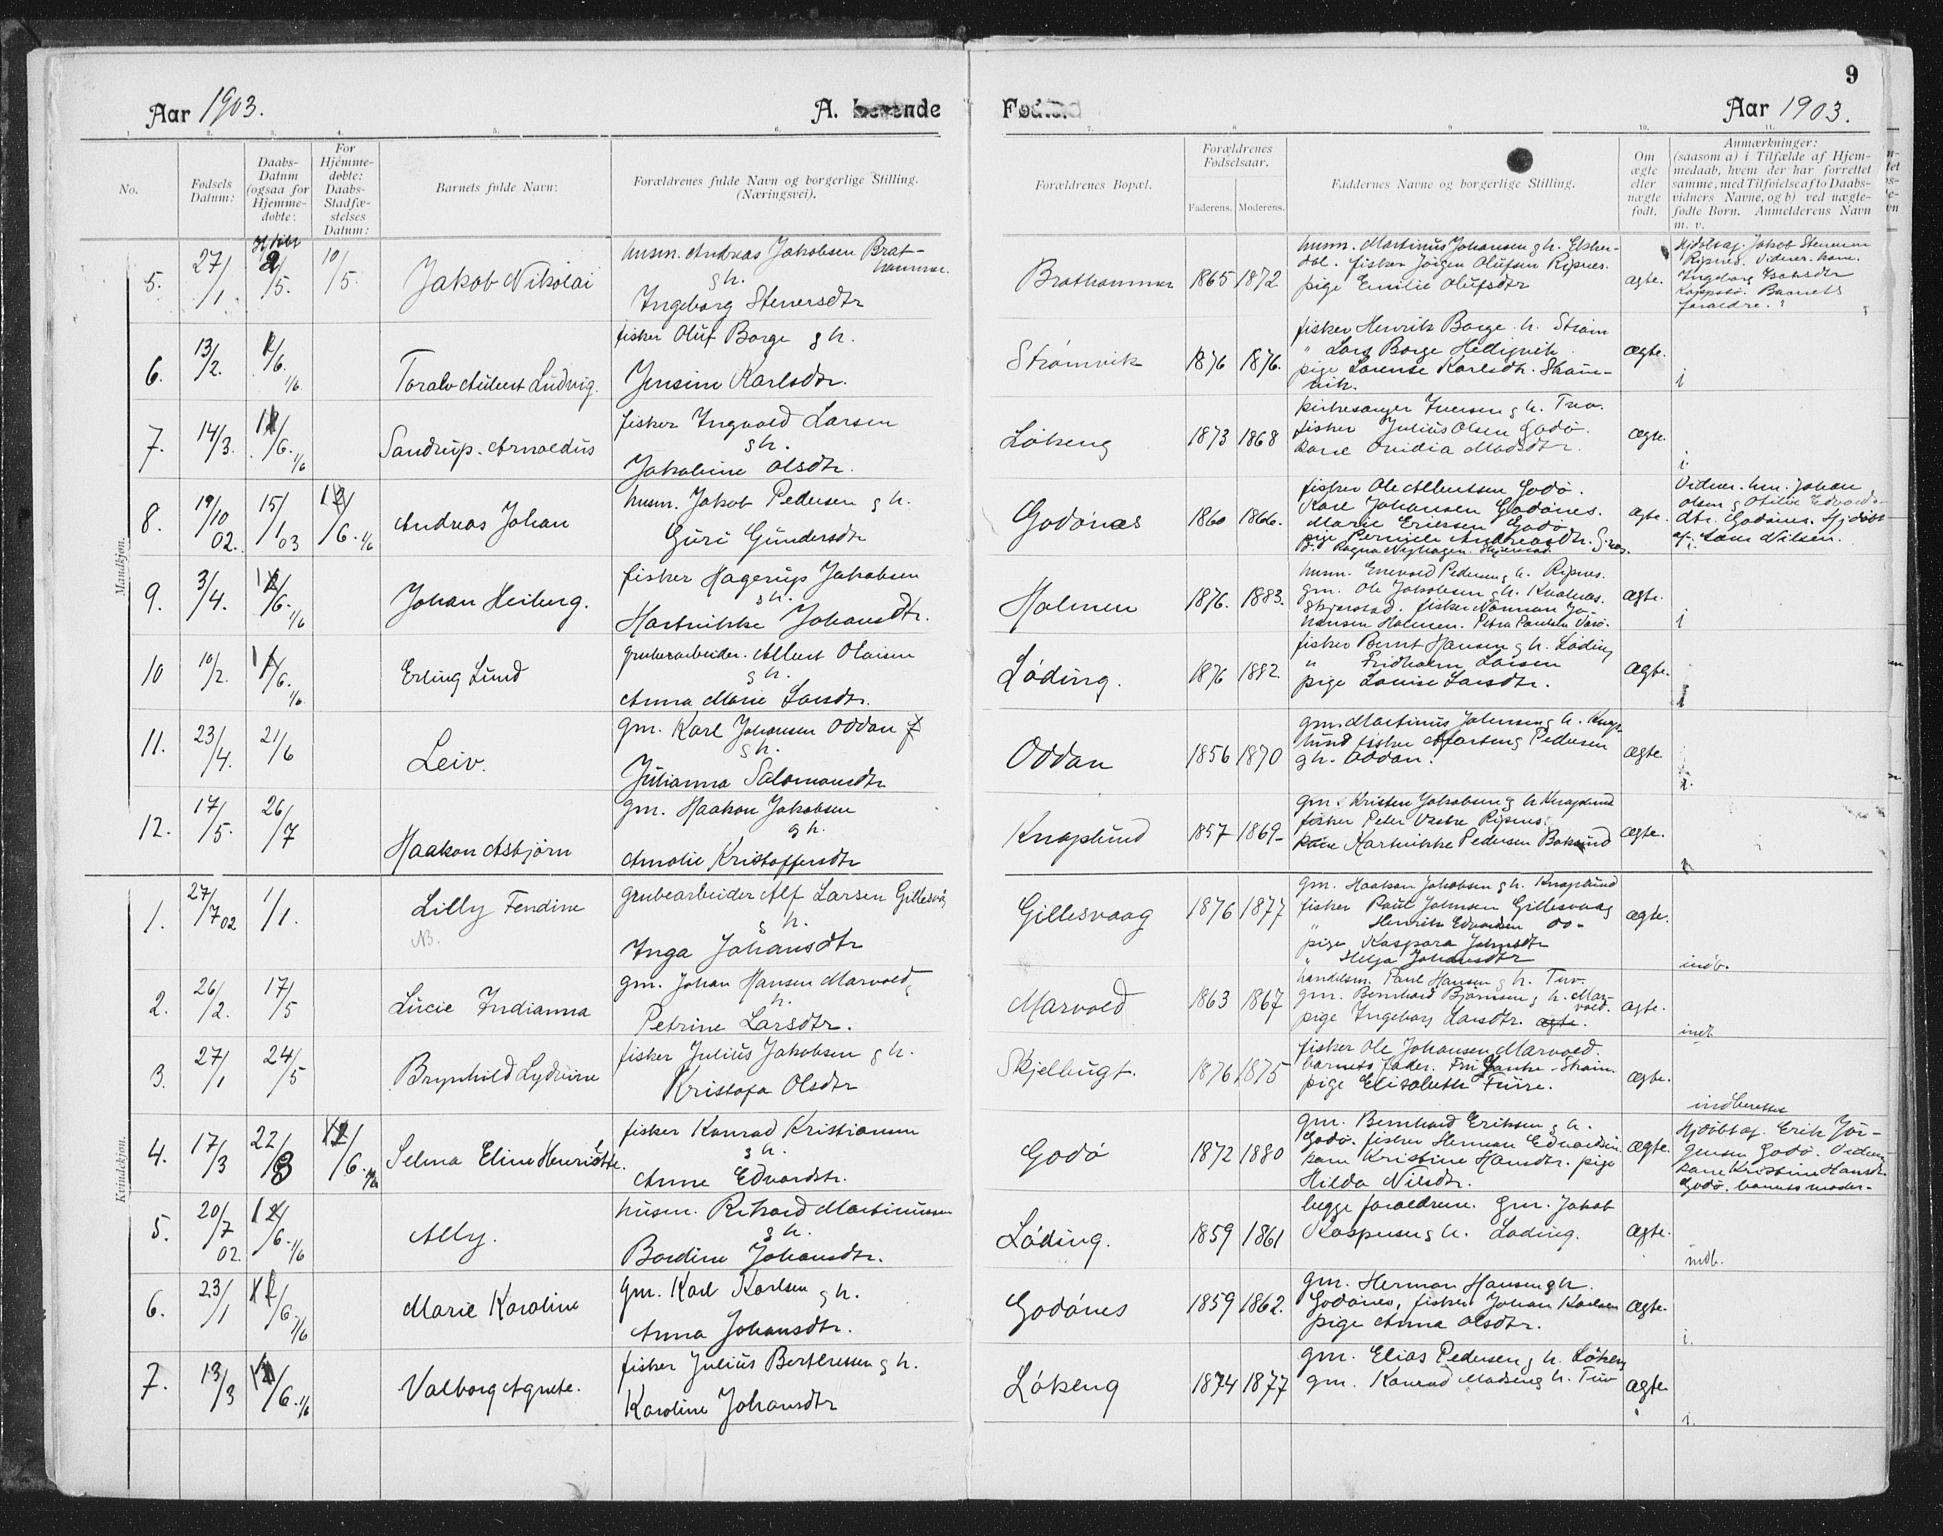 9
Aar 1903.
A. Levende
Fødte.
Aar 1903.
No.
Fødsels Datum:
Daabs- Datum (ogsaa for Hjemme- døbte:
For Hjemme- døbte: Daabs- Stadfæ- stelses Datum:
Barnets fulde Navn:
Forældrenes fulde Navn og borgerlige Stilling. (Næringsvei).
Forældrenes Bopæl.
Forældrenes Fødselsaar.
Faderens. Moderens.
Faddernes Navne og borgerlige Stilling.
Om ægte eller uægte født.
Anmærkninger:
(saasom a) i Tilfælde af Hjem-
medaab, hvem der har forrettet
samme, med Tilføielse af to Daabs-
vidners Navne, og b) ved uægte-
fødte Børn. Anmelderens Navn
m. v.
Mandkjøn.
5. 27/1. 2/5. 10/5. Jakob Nikolai
husm. Andreas Jakobsen Brat-
hammer.
g h.
Ingeborg Stenersdtr
Brathammer 1865 1872
husm. Martinus Johansen g h.
fisker Jörgen Olufsen Ripnes.
pige Emilie Olufsdtr
ægte.
Hjdöbt af. Jakob Stenersen
Ripnes. Vidner. kone.
Ingeborg
Barnets
forældre.
6. 13/2. 1/6. Toralv Albert Ludvig.
fisker Oluf Borge g h.
Jensine Karlsdtr.
Strömvik 1876 1876.
fisker Henrik Borge. h. Ström
" Lars Borge
pige Lovense Karlsdtr. Ström-
vik.
ægte.
i
7. 14/3. 1/6. Sandrup. Arnoldus
fisker Ingvald Larsen
g h.
Jakobine Olsdtr.
Lökeng 1873 1868
kirkesanger Iversen g h. Tuv.
fisker Julius Olsen Godö.
kone Ovidia Madsdtr.
ægte.
i
8. 19/10 02. 15/1 03 1/6. Andreas Johan
husm. Jakob Pedersen g h.
Guri Gundersdtr
Godönes 1860 1866.
fisker Ole Albertsen Godö.
Karl Johansen Godönes.
Marie Eriksen Godö
pige Pernille Andreasdtr.
ægte.
Vidner. hm. Johan
Olsen g Otilie Edvards-
dtr. Godönes. Hjdöbt
af. Lars Nilsen.
9. 3/4. 1/6. Johan Heiberg.
fisker Hagerup Jakobsen
g h.
Hartvikke Johansdtr.
Holmen 1876. 1883.
husm. Enevold Pedersen g h. Ripnes.
gm. Ole Jakobsen g h.
Skjerstad. fisker Normann Jo-
hansen Holmen. Petra Paulsen
ægte.
i
10 10/2. 1/6. Erling Lund
grubearbeider. Albert Olaisen
g h.
Anna Marie Larsdtr.
Löding. 1876 1882
fisker Bernt Hansen g h. Löding
" Fridholm Larsen
pige Louise Larsdtr.
ægte.
i
11. 23/4. 21/6 Leiv.
gm. Karl Johansen Oddan
g h.
Julianna Salomonsdtr
Oddan 1856 1870
gm. Martinus Johnsen g h. Knap-
lund fisker Hartvig Pedersen
g h. Oddan.
ægte.
i.
12. 17/5. 26/7 Haakon Asbjörn
gm. Haakon Jakobsen
g h.
Amalie Kristoffersdtr
Knaplund 1857 1869
gm. Kristen Jakobsen g h Knaplund
fisker Peter Ripnes
kone Hartvikke Pedersen
ægte.
Kvindekjøn.
1. 27/7 02 1/1. Lilly Fendine
NB.
grubearbeider Alf Larsen Gillesvåg
g h.
Inga Johansdtr
Gillesvaag 1876 1877
gm. Haakon Jakobsen g h. Knaplund
fisker Paul Johnsen Gillesvaag
" Henrik Edvardsen do-
pige Kaspara Johnsdtr
" Helga Johansdtr
ægte.
indb.
2. 26/2. 17/5 Lucie Indianna
gm. Johan Hansen Marvold
g h.
Petrine Larsdtr.
Marvold 1863 1867
handelsm. Paul Hansen g h. Tuv.
gm. Bernhard Björnsen g h. Mar-
vold.
pige Ingeborg Larsdtr. ægte.
ægte.
indb
3. 27/1 24/5 Brynhild Lydvine
fisker Julius Jakobsen g h.
Kristofa Olsdtr
Skjelbugt. 1876 1875
fisker Ole Johansen Marvold.
barnets fader. Ström.
pige Elisabeth Furre.
ægte.
indberettet
4. 17/3 22/3 1/6. Selma Eline Henriette.
fisker Konrad Kristiansen
g h.
Anne Edvardstr.
Godö 1872 1880
gm. Bernhard Eriksen g h.
Godö. fisker Herman Edvardsen
kone Kristine Hansdtr. pige
Hilda Nilsdtr.
ægte.
Hjdöbt af. Erik Jör-
gensen Godö. Vidner
kone Kristine Hansdtr.
Godö. barnets moder-
5. 20/7 02 1/6. Ally.
husm. Rikard Martinussen
g h.
Bordine Johansdtr.
Löding. 1859 1861
begge forældrene. gm. Jakob
Kaspersen g h. Löding.
ægte.
indb.
6. 23/1 1/6. Marie Karoline
gm. Karl Karlsen g h.
Anna Johansdtr.
Godönes 1859 1862.
gm. Herman Hansen g h.
Godönes, fisker Johan Karlsen
pige Anna Olsdtr.
ægte.
i.
7. 13/3 1/6. Valborg Agnete.
fisker Julius Berthessen g h.
Karoline Johansdtr
Lökeng 1874 1877
gm. Elias Pedersen g h. Lökeng
gm. Konrad Madsen g h. Tuv
ægte.
i.